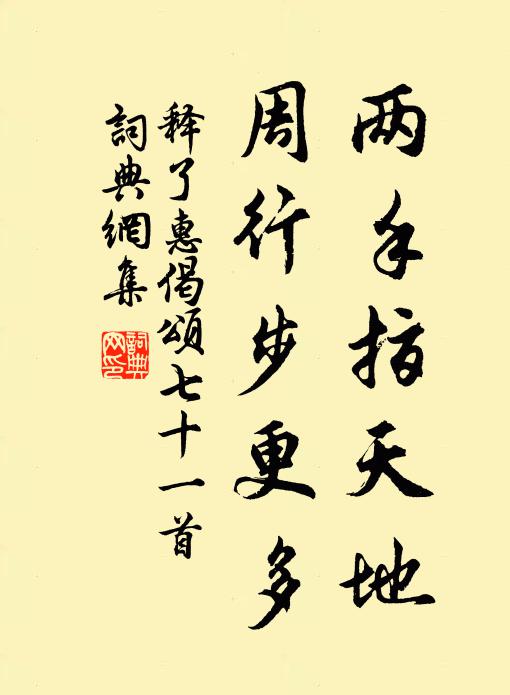 两手指天地
周行步更多
释了惠偈颂七十一首
詞典網集
詞典网印